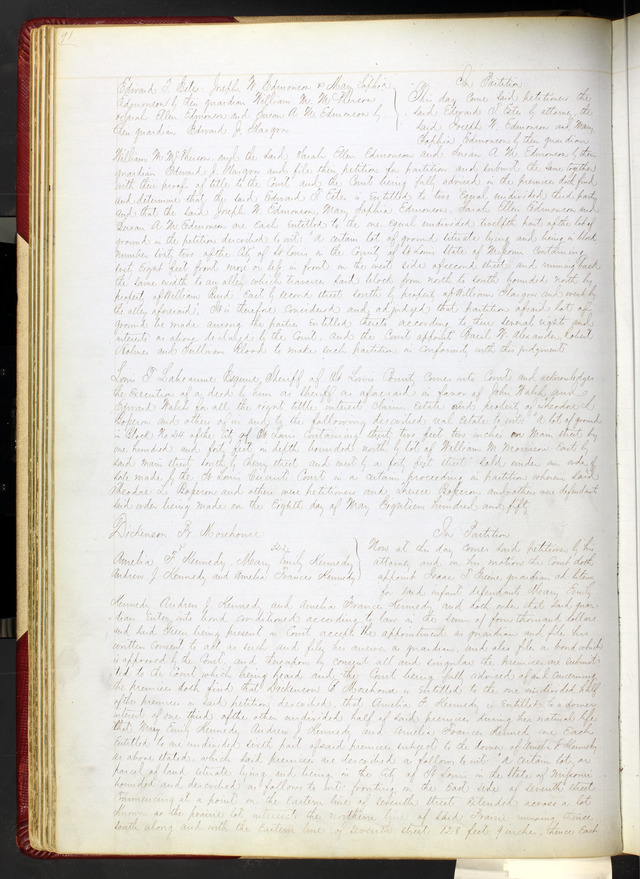 91
Edward T. Estes Joseph W. Edmonson & Mary Sophia
Edmonson by their guardian William M. McPherson
Sarah Ellen Edmonson and Susan A. M. Edmonson by
their guardian Edward J. Glasgow
In Partition
This day come said petitioners the
said Edward T. Estes by attorney, the
said Joseph W. Edmonson and Mary
Sophia Edmonson by their guardian
William M. McPherson, and the said Sarah Ellen Edmonson and Susan A. M. Edmonson by their
guardian Edward J. Glasgow and file their petition for partition and submit the same together
with their proofs of title to the Court and the Court being fully advised in the premises doth find
and determine that the said Edward T. Estes is Entitled to two equal undivided third parts,
and that the said Joseph W. Edmonson, Mary Sophia Edmonson, Sarah Ellen Edmonson and
Susan A. M. Edmonson are Each Entitled to the one equal undivided twelfth part of the lot of
ground in the petition described to wit: A certain lot of ground situate lying and being in block
number forty two of the City of St Louis in the County of St Louis State of Missouri containing
feet front more or less in front on the west side of second street and running back
the same width to an alley which traverses said block from north to south bounded north by
property of William East by second street south by property of William Glasgow and west by
the alley aforesaid; It is therefore considered and adjudged that partition of said lot of
ground be made among the parties entitled thereto according to their several rights and
interests as above declared by the Court, and the Court appoint Basil W. Alexander, Robert
and Sullivan Blood to make such partition in conformity with this judgment
Louis T. Labeaume Esquire, Sheriff of St Louis County, Comes into Court and acknowledges
the Execution of a deed by him as sheriff as aforesaid in favor of John Walsh and
Edward Walsh for all the right title interest claim Estate and property of Theodore L.
and others of in and to the following described real Estate to wit: A lot of ground
in Block No 24 of the City of St Louis containing feet two inches on Main street by
one hundred and forty feet in depth bounded north by lot of William M. Morrison East by
said main street south by Cherry street and west by a forty feet street. Sold under an order of
sale made by the St Louis Circuit Court in a certain proceeding in partition wherein said
Theodore L. and others were petitioners and and others were defendants
said order being made on the Eighth day of May Eighteen hundred and fifty
Dickenson B. Morehouse
vs
Amelia F. Kennedy, Mary Emily Kennedy
Andrew J. Kennedy and Amelia Frances Kennedy
In Partition
Now at this day comes said petitioner by his
attorney, and on his motion the Court doth
appoint Isaac T. Greene guardian ad litem
for said infant defendants Mary Emily
Kennedy Andrew J. Kennedy and Amelia Frances Kennedy and doth order that said guar-
dian Enter into bond conditioned according to law in the sum of four thousand dollars
and said Greene being present in Court accepts the appointment as guardian and files his
written consent to act as such and files his answer as guardian, and also files a bond which
is approved by the Court, and thereupon by consent all and singular the premises are submit-
ted to the Court which being heard and the Court being fully advised of and concerning
the premises doth find that Dickenson B. Morehouse is Entitled to the one undivided half
of the premises in said petition described, that Amelia F. Kennedy is Entitled to a dower
interest of one third of the other undivided half of said premises during her natural life
that Mary Emily Kennedy Andrew J. Kennedy and Amelia Frances Kennedy are Each
Entitled to one undivided sixth part of said premises subject to the dower of Amelia F. Kennedy
as above stated, which said premises are described as follows to wit: A certain lot, or
parcel of land situate lying and being in the City of St Louis in the State of Missouri
bounded and described as follows to wit: fronting on the East side of seventh street
commencing at a point on the Eastern line of seventh street Extended across a lot
known as the prairie lot, the northern line of said Prairie running thence
south along and with the Eastern line of seventh street 128 feet 9 inches, thence East